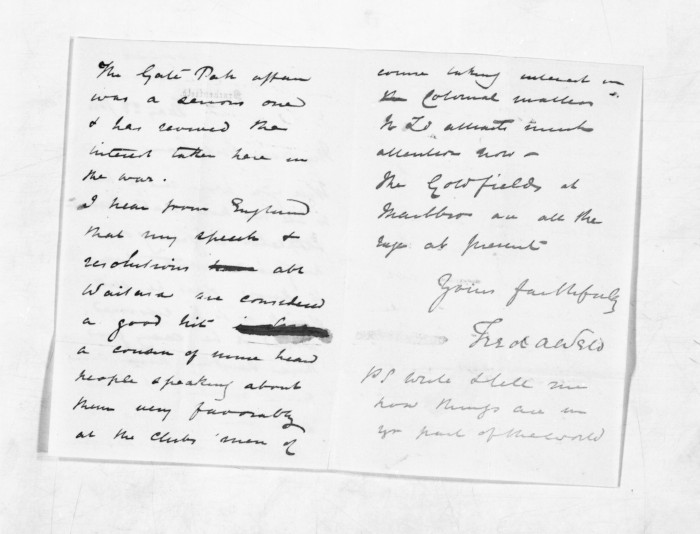 The Gate Pah affair
was a serious one
& has revived the
interest taken here in
the war.
I hear from England
that my speech &
resolutions abt
Waitara are considered
a good hit
a cousin of mine heard
people speaking about
them very favorably
at the clubs men of
course taking interest in
Colonial matters
N Zd attracts much
attention now –
The Goldfields at
Marlbro are all the
rage at present
Yours faithfully
Fred A Weld
PS write & tell me
how things are in
yr part of the world